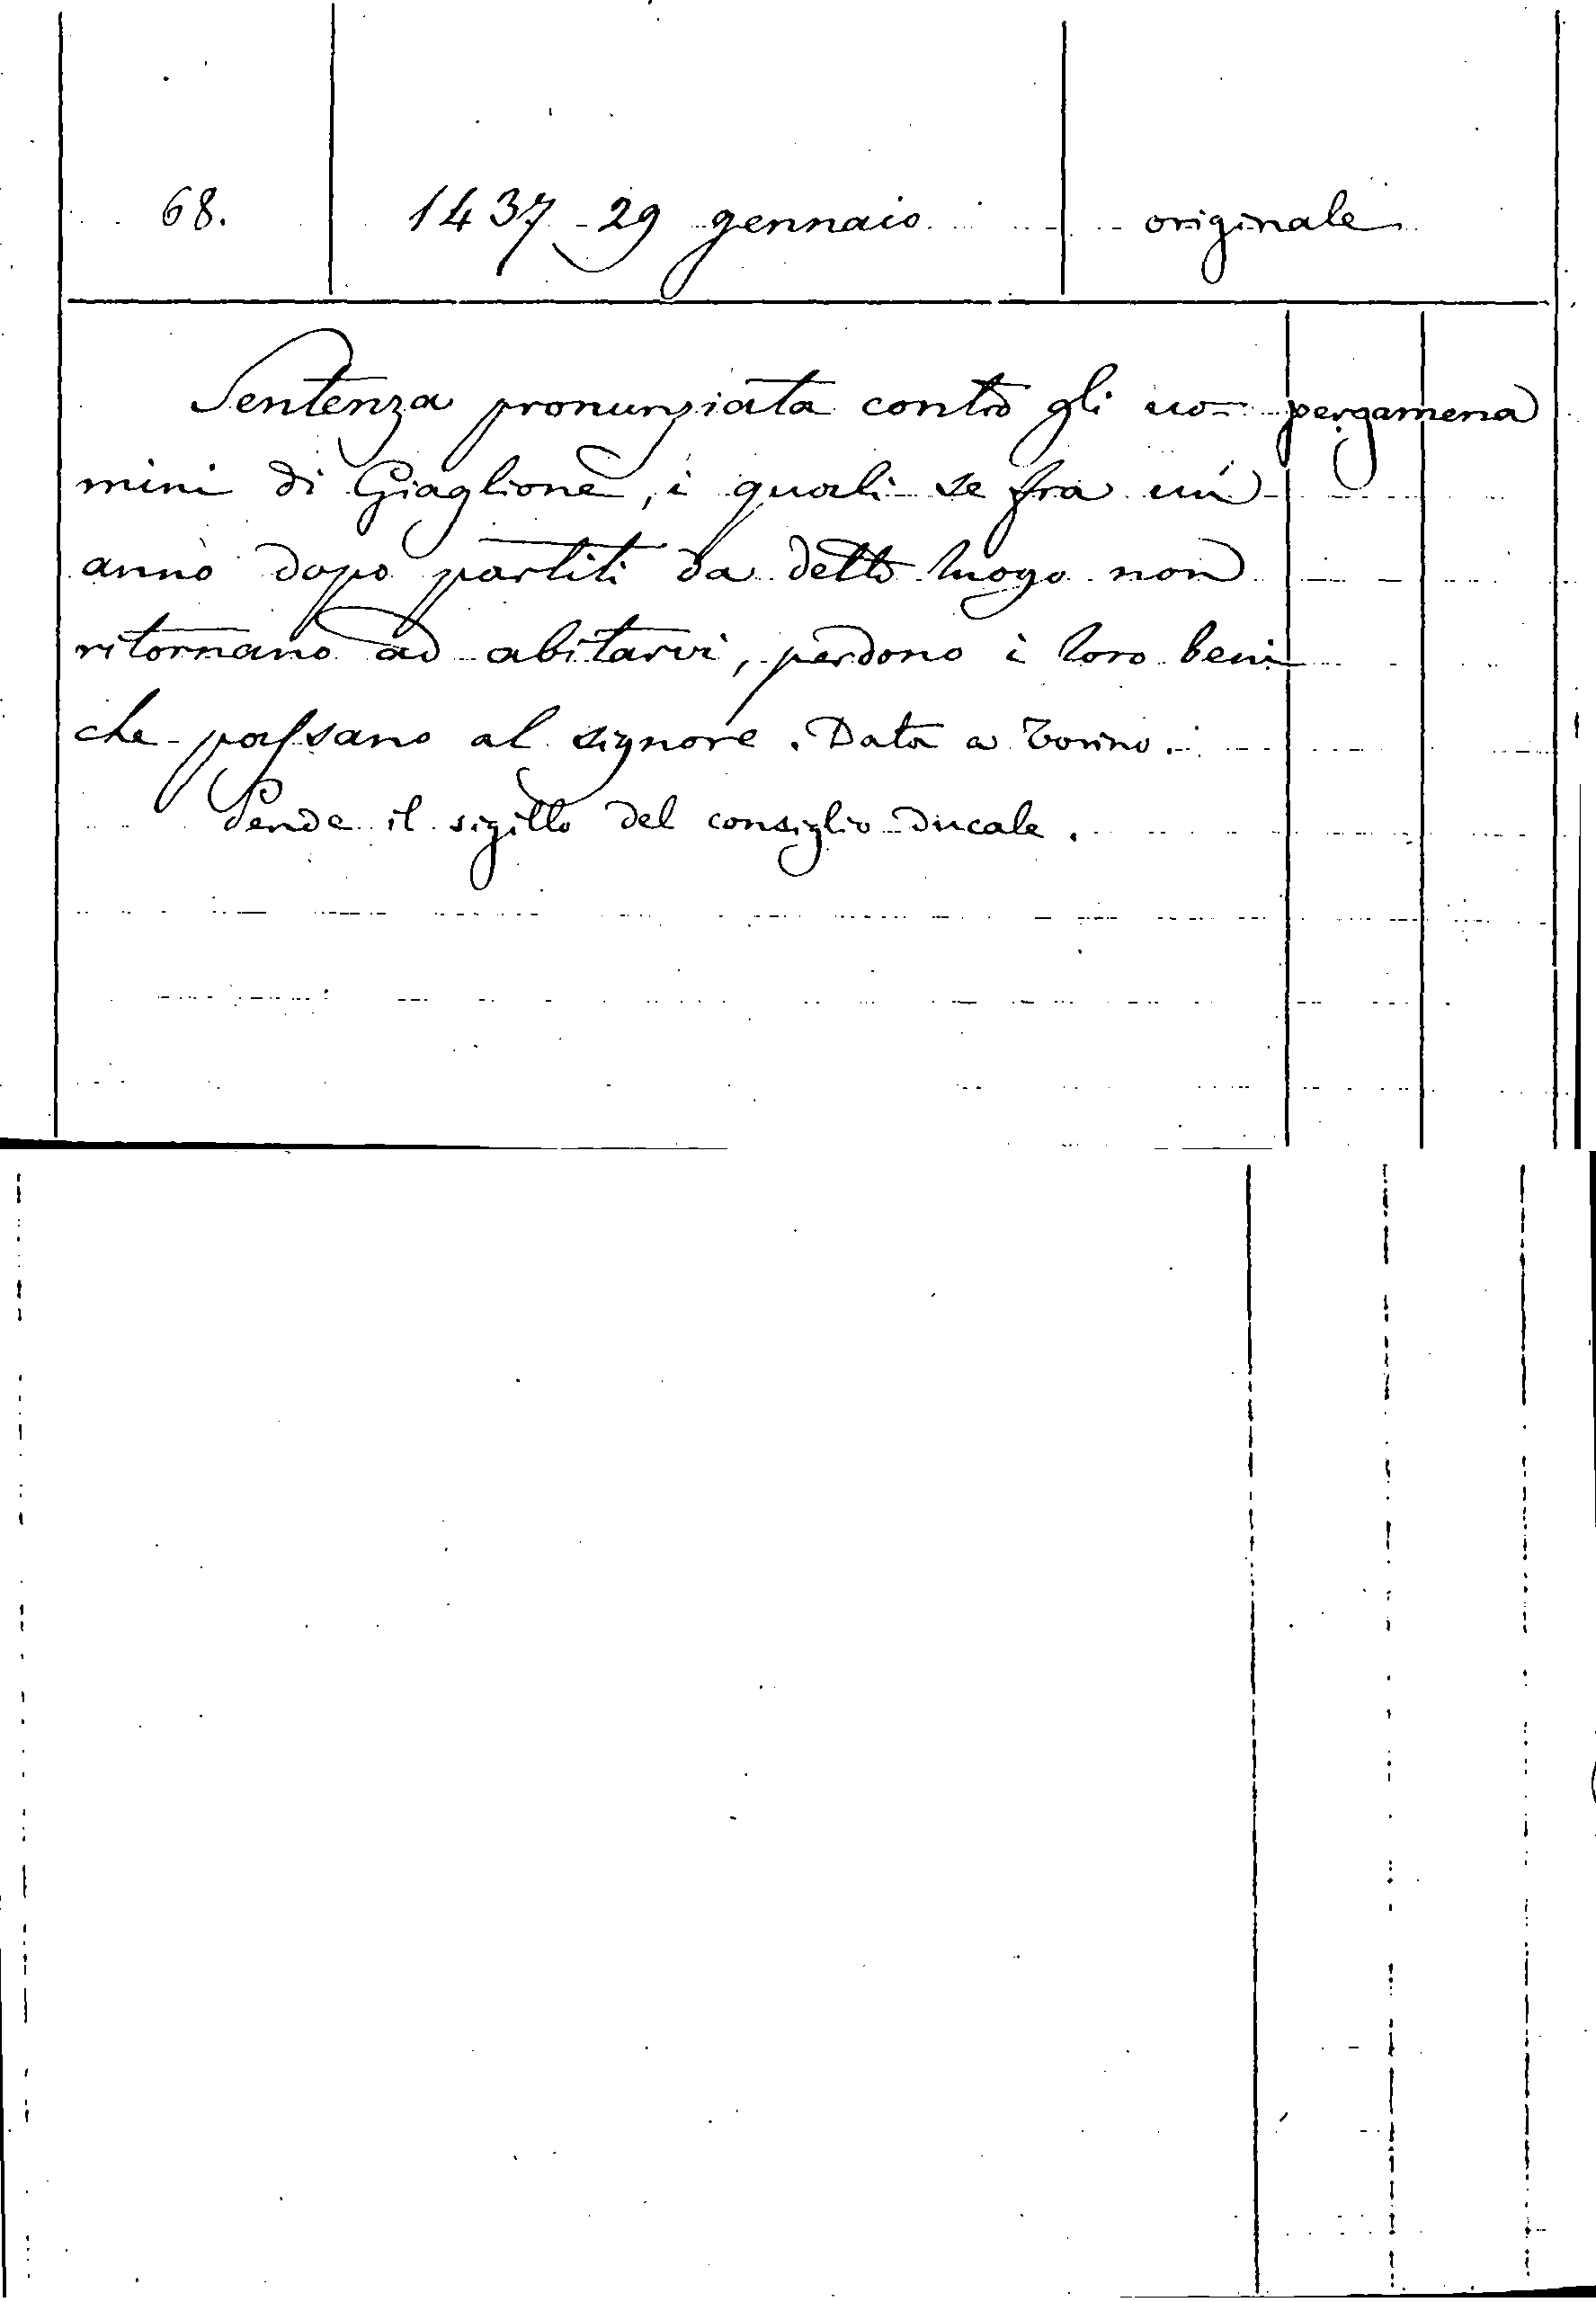 68. 1437 29 gennaio originale
Sentenza pronunziata contro gli uo- pergamena
mini di Giaglione, i quali se fra un
anno dopo partiti da detto luogo non
ritornano ad abitarvi, perdono i loro beni
che passano al signore. Data a Torino.
Pende il sigillo del consiglio ducale.